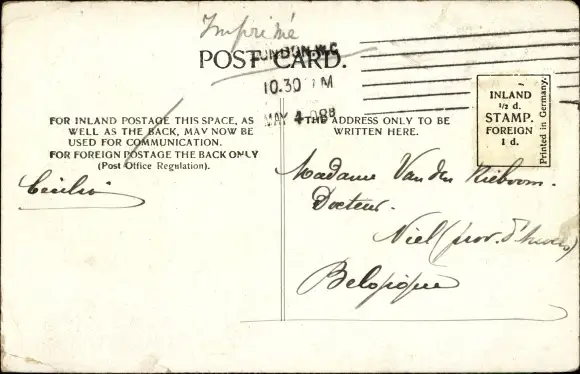 Imprimé
POST CARD.
LONDON. W.C
10.30 PM
MAY 4 08
INLAND
½ d.
STAMP.
FOREIGN
1 d.
Printed in Germany.
FOR INLAND POSTAGE THIS SPACE, AS
WELL AS THE BACK, MAY NOW BE
USED FOR COMMUNICATION.
FOR FOREIGN POSTAGE THE BACK ONLY
(Post Office Regulation).
THE ADDRESS ONLY TO BE
WRITTEN HERE.
Madame Van den
Docteur.
Niel (prov. d'Anvers)
Belgique